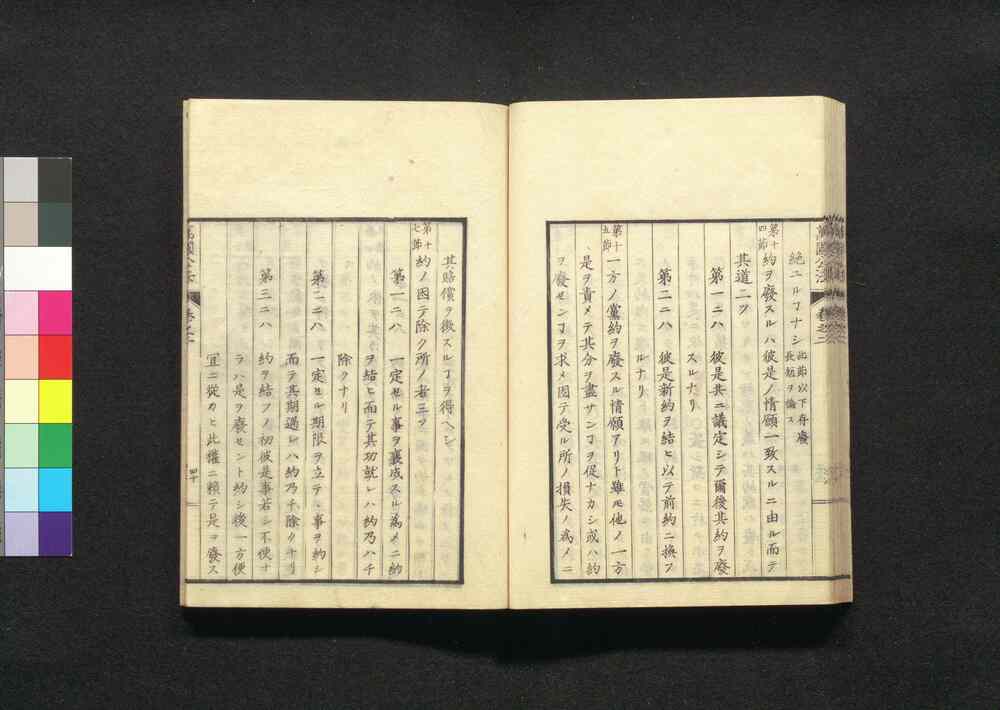 絶ユルヿナシ此節以下存廢長短ヲ論ス
第十四節約ヲ廢スルハ彼是ノ情願一致スルニ由ル而テ
其道二ツ
第一ニハ 彼是共ニ議定シテ爾後其約ヲ廢
スルナリ
第二ニハ 彼是新約ヲ結ヒ以テ前約ニ換フ
ルナリ
第十五節一方ノ黨約ヲ廢スル情願アリト雖モ他ノ一方
是ヲ責メテ其分ヲ盡サンヿヲ促ナカシ或ハ約
ヲ廢センヿヲ求メ因テ受ル所ノ損失ノ爲メニ
其賠償ヲ徴スルヿヲ得ヘシ
第十七節約ノ因テ除ク所ノ者三ツ
第一ニハ 一定セル事ヲ襄成スル爲メニ約
ヲ結ヒ而テ其功就レハ約乃ハチ
除クナリ
第二ニハ 一定セル期限ヲ立テヽ事ヲ約シ
而テ其期過レハ約乃チ除クナリ
第三ニハ 約ヲ結フノ初彼是事若シ不便ナ
ラハ是ヲ廢セント約シ後一方便
宜ニ從カヒ此權ニ賴テ是ヲ廢ス
萬國公法 卷之二
四十